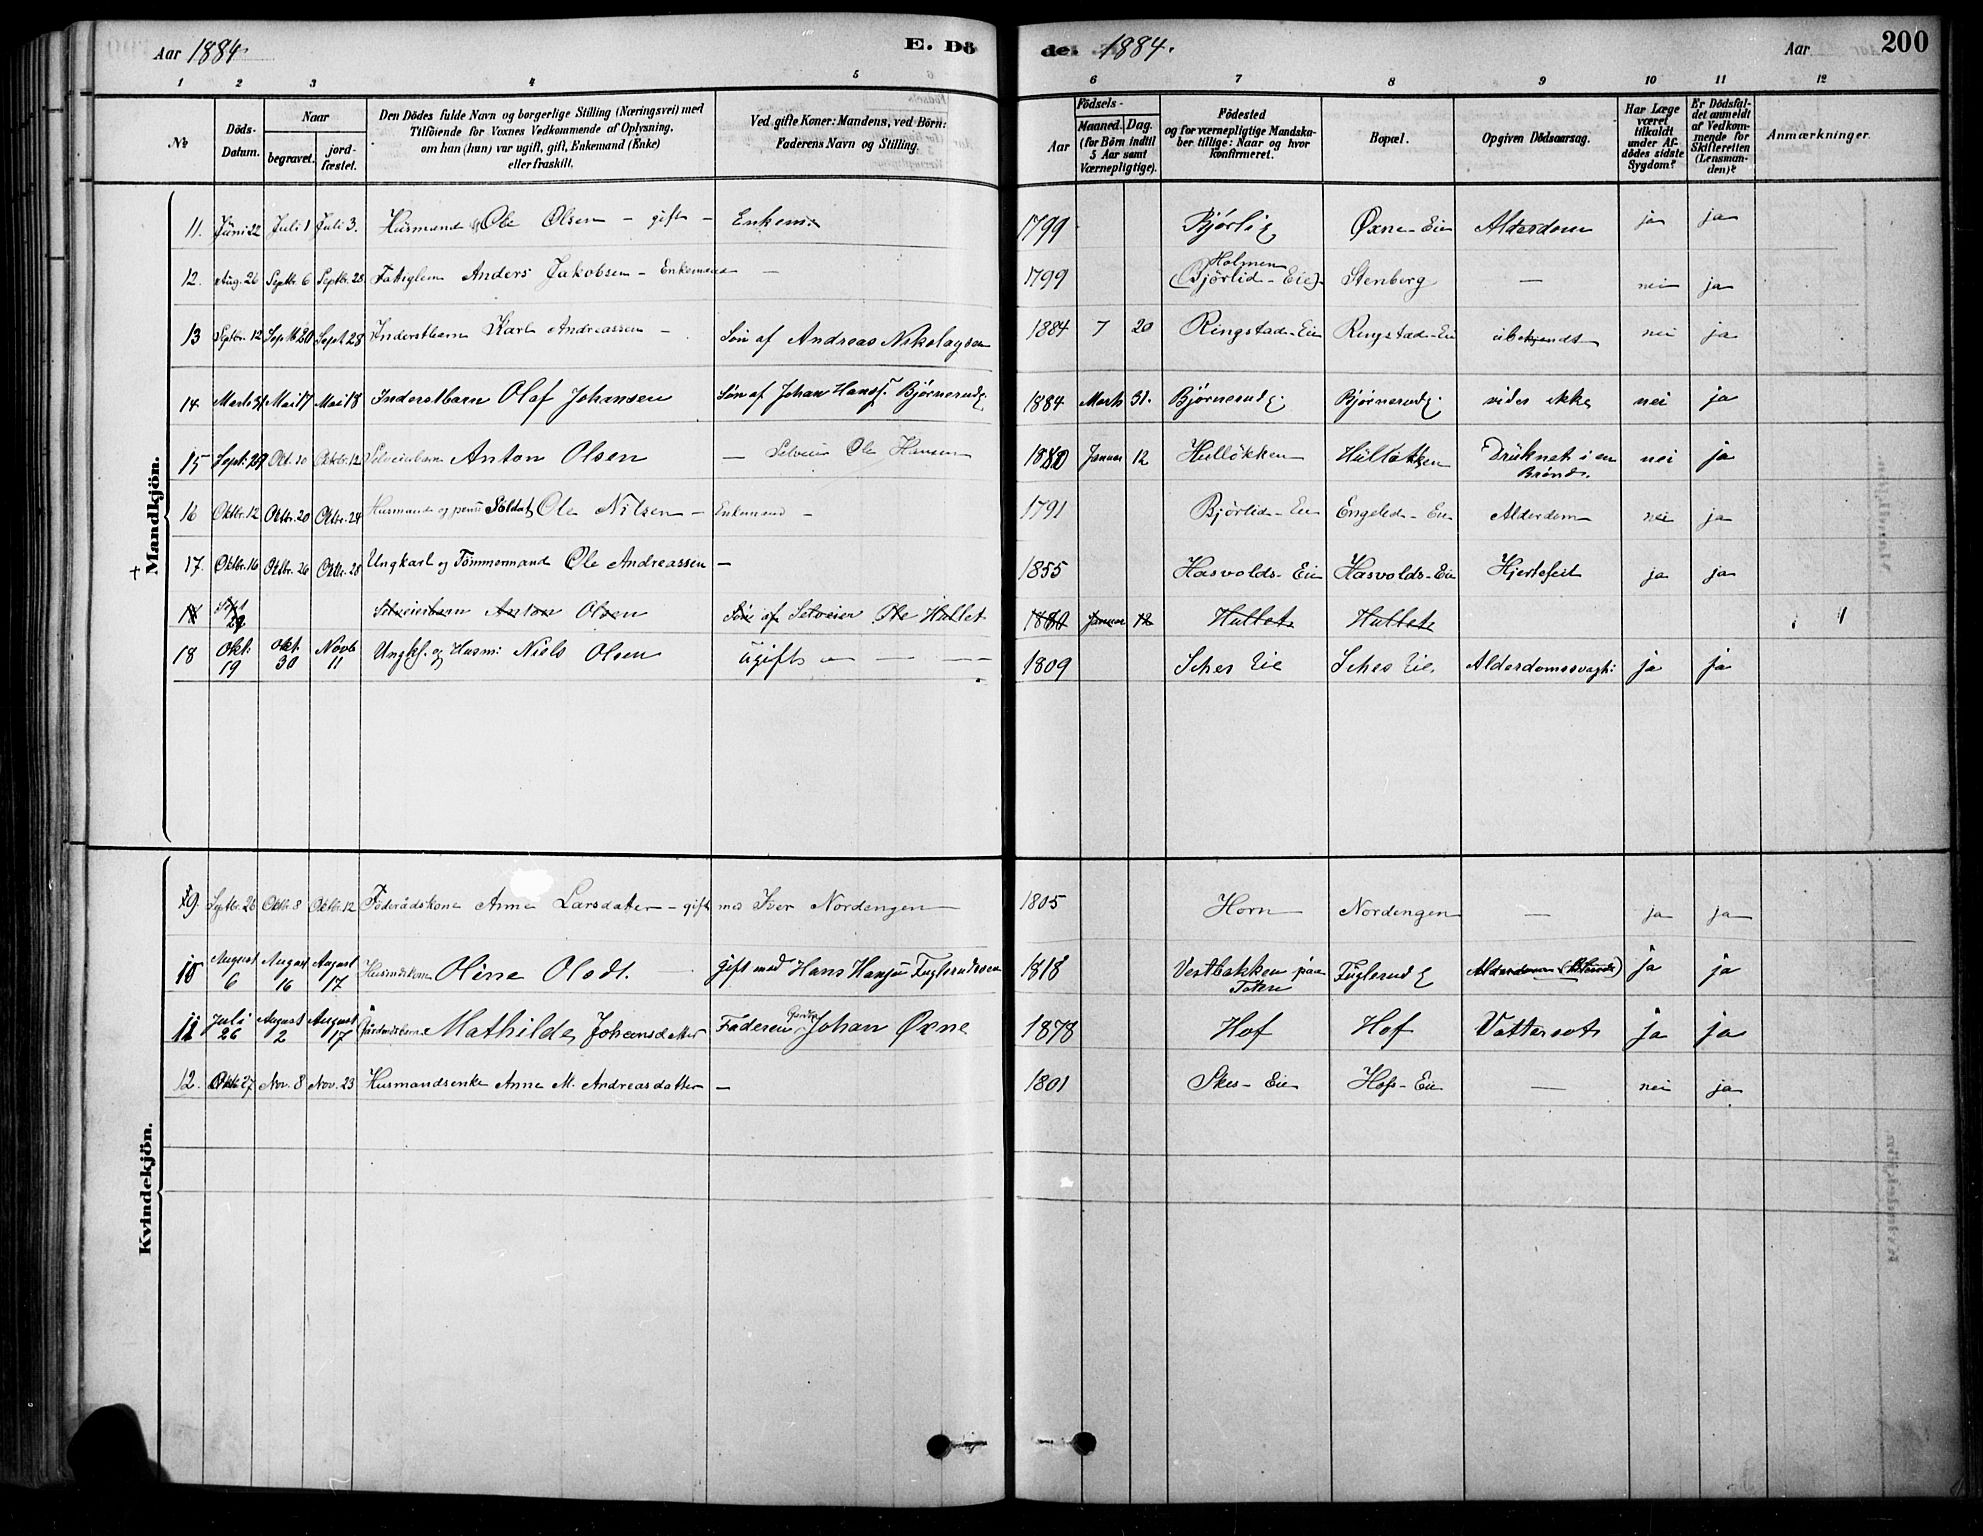 Aar 1884. E. Dö de. 1884. Aar 200
1 2 3 4 5 6 7 8 9 10 11 12
No
Döds-Datum.
Naar
begravet.
jord-fæstet.
Den Dödes fulde Navn og borgerlige Stilling (Næringsvei) med
Tilföiende for Voxnes Vedkommende af Oplysning,
om han (hun) var ugift, gift, Enkemand (Enke)
eller fraskilt.
Ved gifte Koner: Mandens, ved Börn:
Faderens Navn og Stilling.
Födsels-
Aar
Maaned. Dag.
(for Börn indtil
5 Aar samt
Værnepligtige).
Födested
og for værnepligtige Mandska-
ber tillige: Naar og hvor
konfirmeret.
Bopæl.
Opgiven Dödsaarsag.
Har Læge
været
tilkaldt
under Af-
dødes sidste
Sygdom?
Er Dödsfal-
det anmeldt
af Vedkom-
mende for
Skifteretten
(Lensman-
den)?
Anmærkninger.
Mandkjön.
11. Juni 22 Juli 1 Juli 3. Husmand Ole Olsen - gift - 1799 Bjørlig Øxne-Eie Alderdom ja ja
12. Aug. 26 Septbr. 6 Septbr. 28 Anders Jakobsen - Enkemand - 1799 Holmen (Bjørlid-Eie) Stenberg — nei ja
13 Septbr. 12 Septb 20 Sept 28 Inderstbarn Karl Andreassen - Søn af Andreas Nikolaysen 1884 7 20 Ringstad-Eie Ringstad-Eie ubekjendt nei ja
14 Marts 31 Mai 17 Mai 18 Inderstbarn Olaf Johansen Søn af Johan Hans. Bjørnerud 1884 Marts 31. Bjørnerud Bjørnerud vides ikke nei ja
15 Sept: 29 Okt. 10 Oktbr. 12 Selveierbarn Anton Olsen — Selveier Ole Hansen 1880 Januar 12 Hulløkken Hulløkken Druknet i en Brønd. nei ja
16 Oktbr. 12 Oktbr. 20 Oktbr. 24 Husmand og pens: Soldat Ole Nilsen - Enkemand - 1791 Bjørlid-Eie Engelid-Eie Alderdom nei ja
17. Oktbr. 16 Oktbr. 26 Oktbr. 28 Ungkarl og Tømmermand Ole Andreassen — 1855 Hasvolds-Eie Hasvolds-Eie Hjertefeil ja ja
18 Sept 29 Selveierbarn Anton Olsen Søn af Selveier Ole Hullet 1880 Januar 12 Hullet Hullet
18 Okt. 19 Okt. 30 Novb 11 Ungk. og Husm: Niels Olsen ugift — — 1809 Sches Eie Sches Eie. Alderdomssvagh: ja ja
Kvindekjön.
9. Septbr. 26 Oktbr. 8 Oktbr. 12 Føderådskone Anne Larsdatter - gift med Iver Nordengen 1805 Horn Nordengen — ja ja
10 August 6 August 16 August 17 Husmdskone Oline Olsdt. gift med Hans Hansen Fuglerudsen 1818 Vestbakken paa Toten Fuglerud Alderdom ja ja
11 Juli 26 August 2 August 17 Mathilde Johansdatter Faderen Johan Øxne 1878 Hof Hof Vattersot ja ja
12. Oktb 27 Nov. 8 Nov. 23 Husmandsenke Anne M. Andreasdatter — 1801 Skes-Eie Hofs-Eie — nei ja